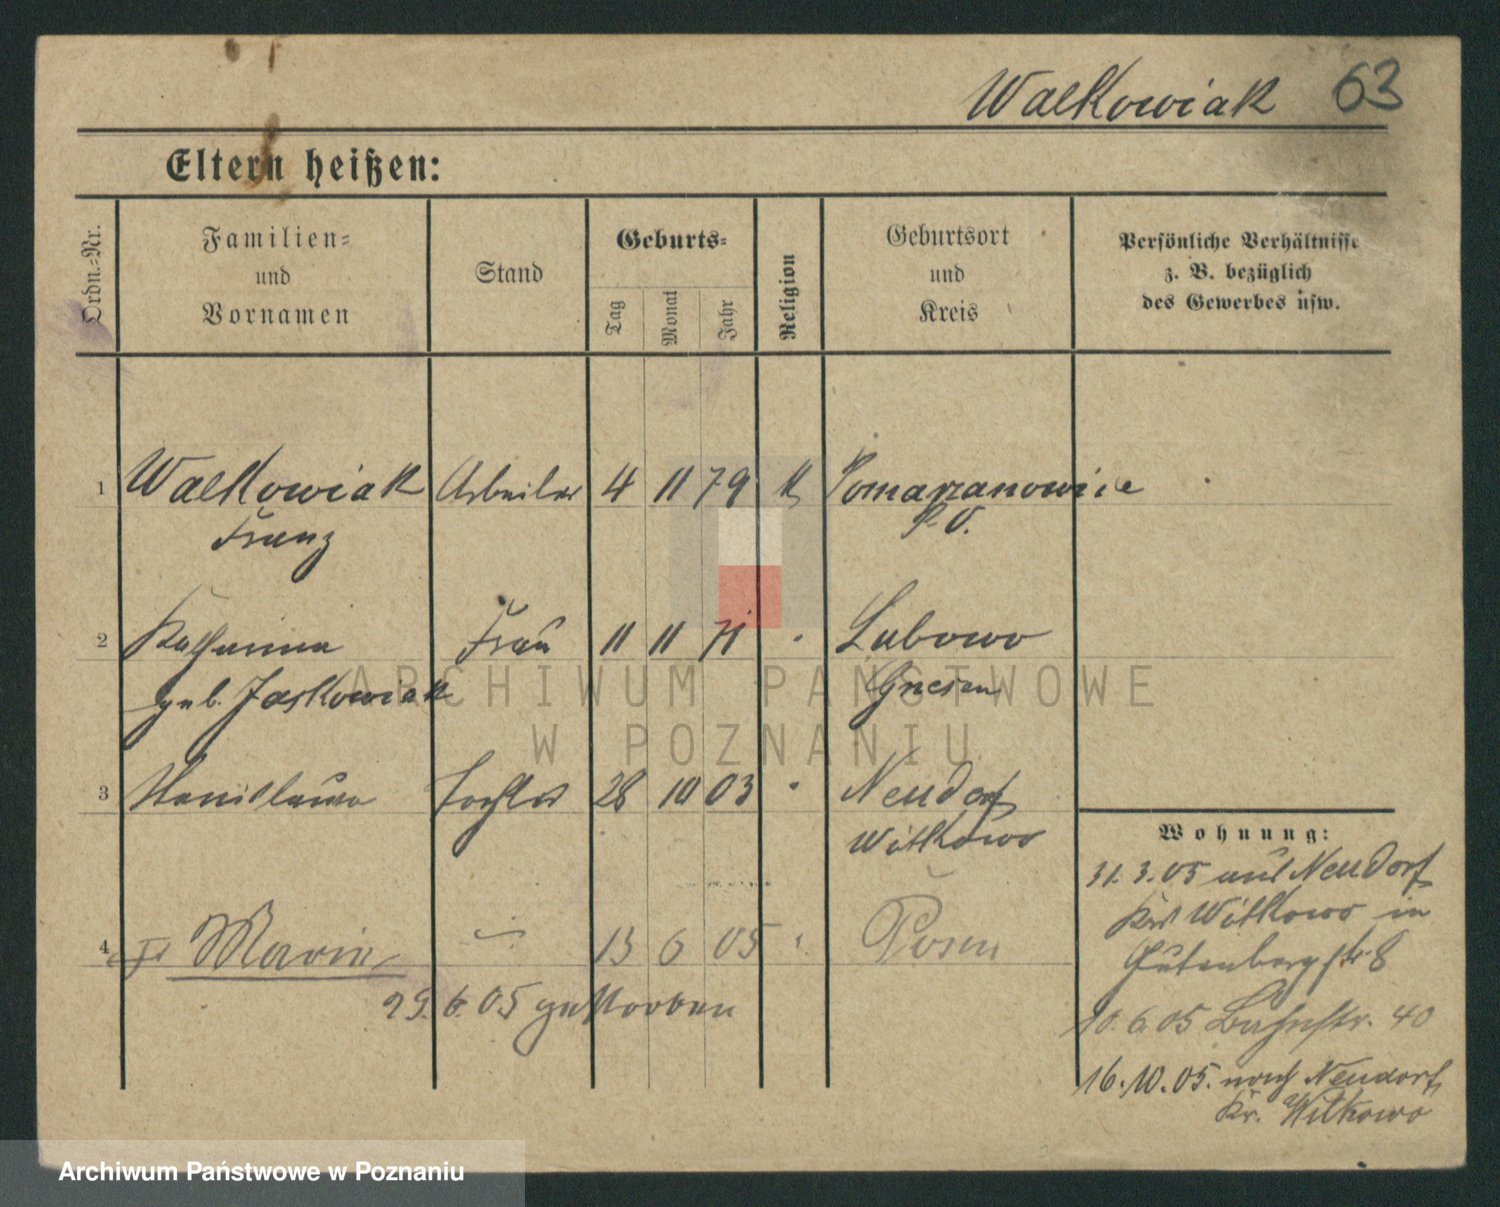 Walkowiak 63
Eltern heißen:
Ordn.-Nr.
Familien-
und
Vornamen
Stand
Geburts-
Tag
Monat
Jahr
Religion
Geburtsort
und
Kreis
Persönliche Verhältnisse
z. B. bezüglich
des Gewerbes usw.
1 Walkowiak Arbeiter 4 11 79 K Pomarzanowice
Franz P. O.
2 Katharina Frau 11 11 71 " Lubowo
geb. Jaskowiak Gnesen
3 Stanislawa Tochter 28 10 03 " Neudorf
Witkowo
4 Marie 13 6 05 Posen
29.6.05 gestorben
Wohnung:
31.3.05 aus Neudorf
Krs Witkowo in
Gutenbergstr 8
10.6.05 Bahnstr. 40
16.10.05. nach Neudorf,
Kr. Witkowo
ARCHIWUM PAŃSTWOWE
W POZNANIU
Archiwum Państwowe w Poznaniu